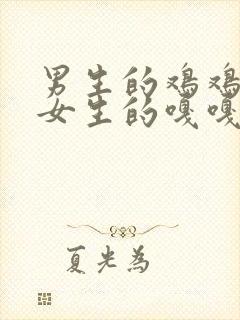 男生的鸡鸡
女生的嘎嘎
夏光為